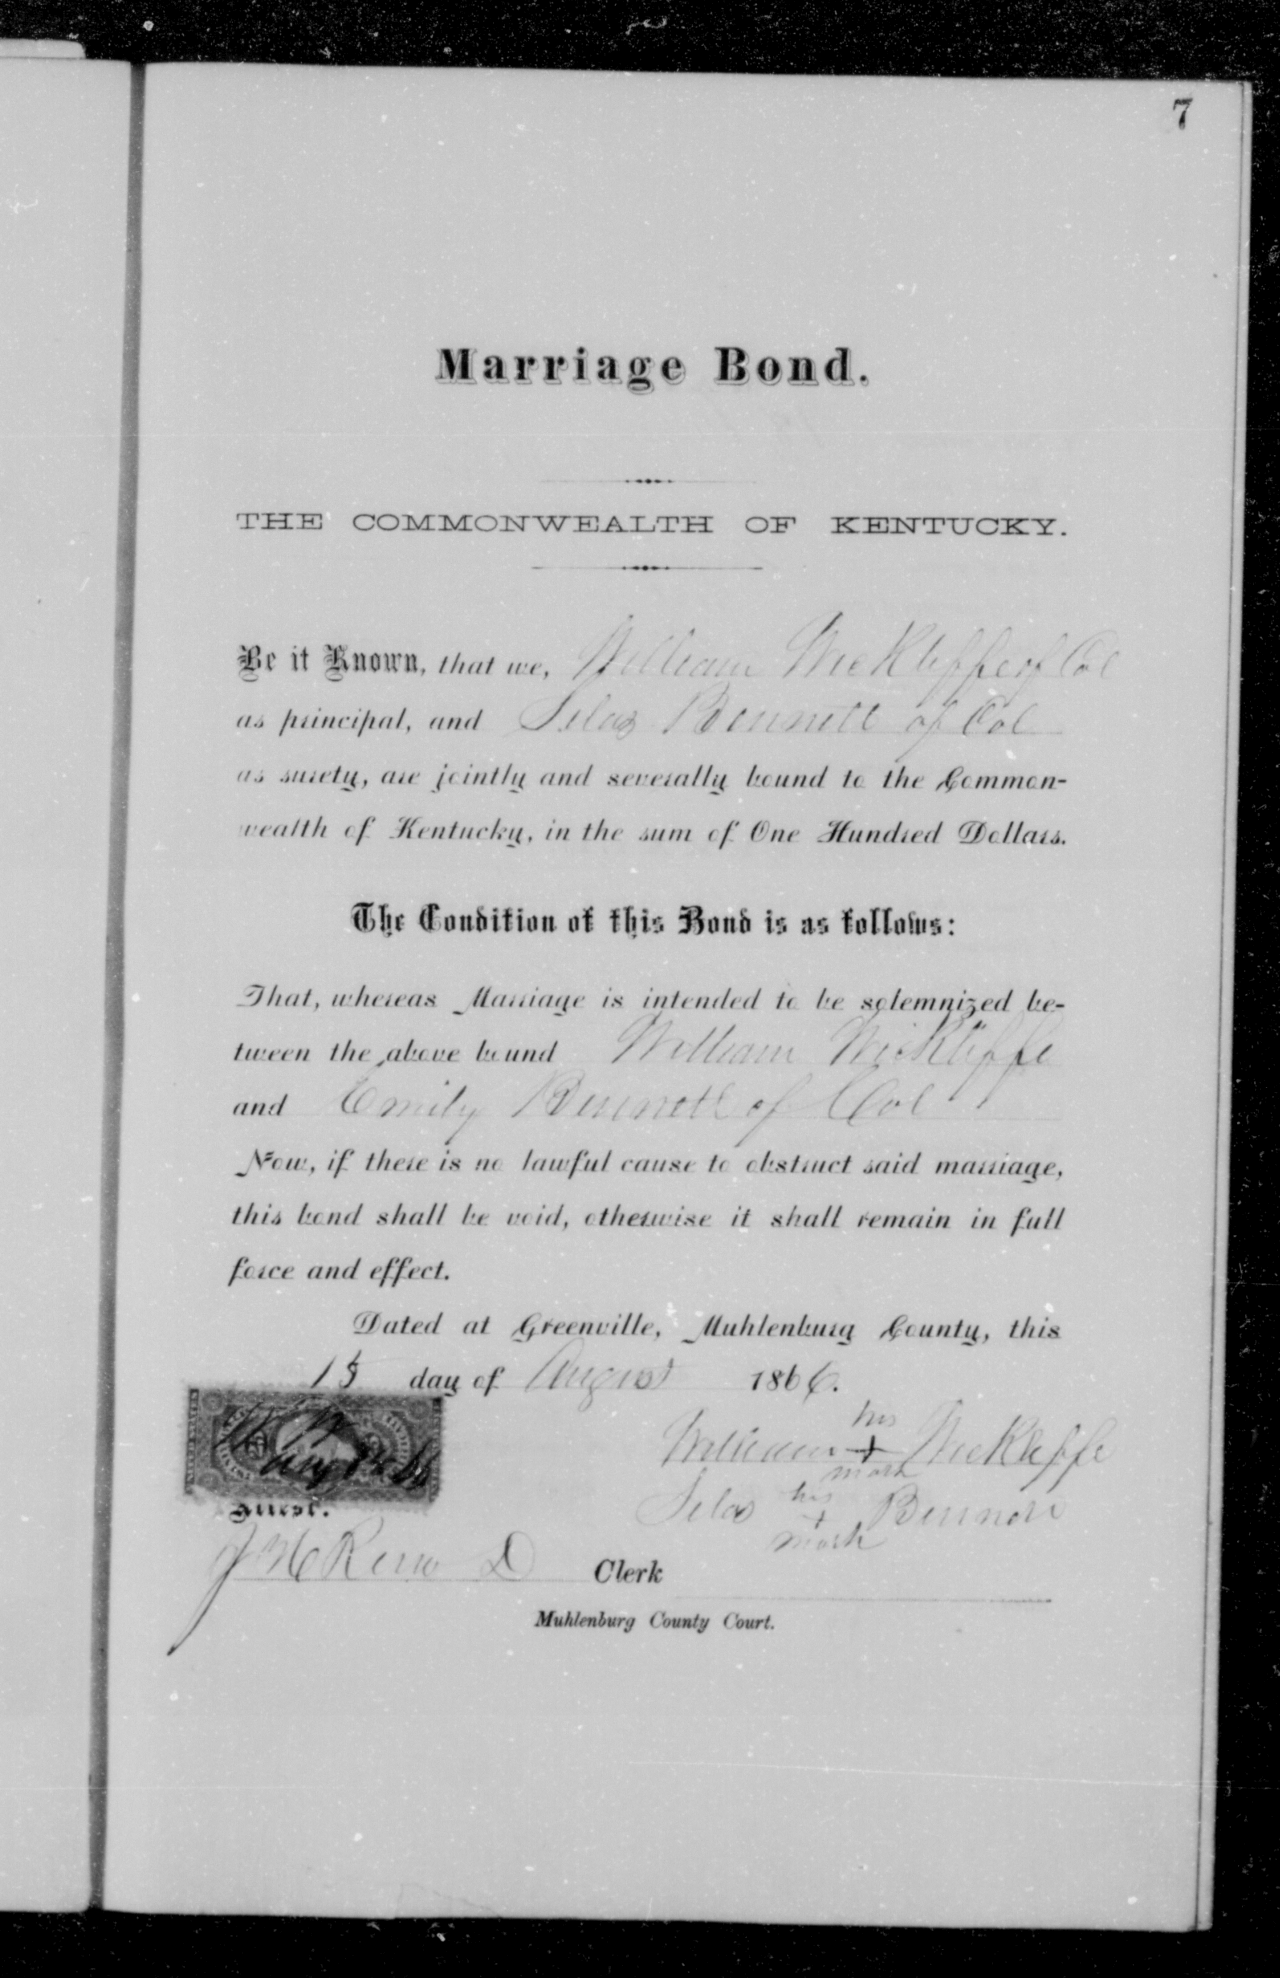 7
Marriage Bond.
THE COMMONWEALTH OF KENTUCKY.
Be it Known, that we, William Wickliffe of Col
as principal, and Silas Bennett of Col
as surety, are jointly and severally bound to the Common-
wealth of Kentucky, in the sum of One Hundred Dollars.
The Condition of this Bond is as follows:
That, whereas Marriage is intended to be solemnized be-
tween the above bound William Wickliffe
and Emily Bennett of Col
Now, if there is no lawful cause to obstruct said marriage,
this bond shall be void, otherwise it shall remain in full
force and effect.
Dated at Greenville, Muhlenburg County, this
day of August 1866.
his
William + Wickliffe
mark
his
Silas + Bennett
mark
Attest:
J W Reno D Clerk
Muhlenburg County Court.